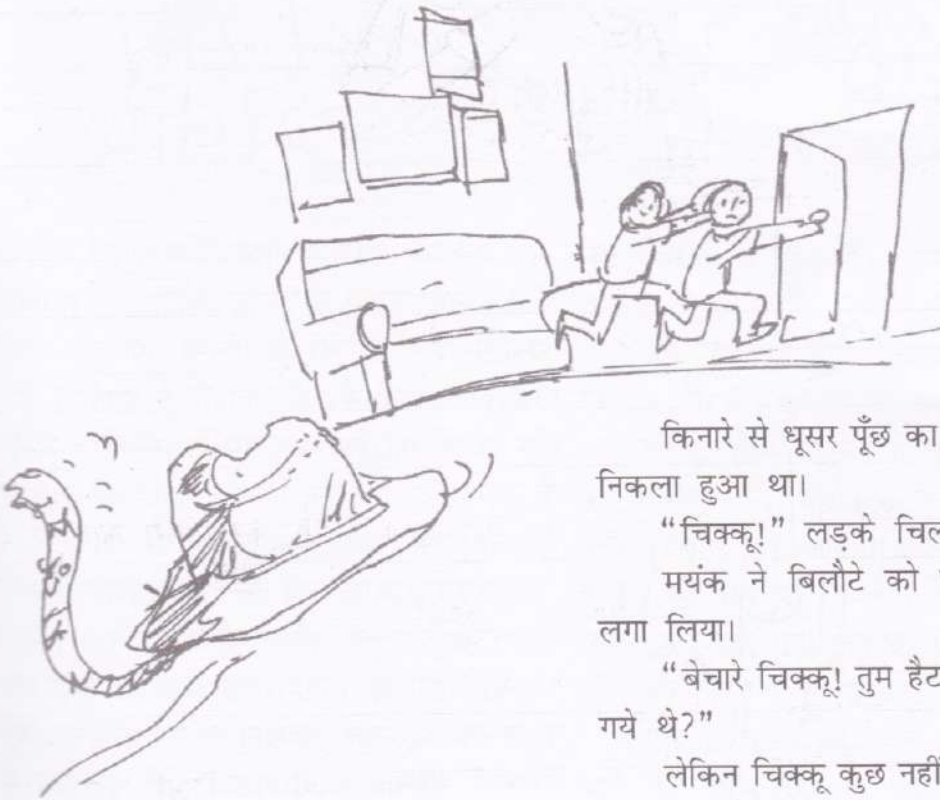 किनारे से धूसर पूँछ का
निकला हुआ था।
“चिक्कू!” लड़के
मयंक ने बिलौटे को
लगा लिया।
“बेचारे चिक्कू! तुम हैट
गये थे?”
लेकिन चिक्कू कुछ नहीं